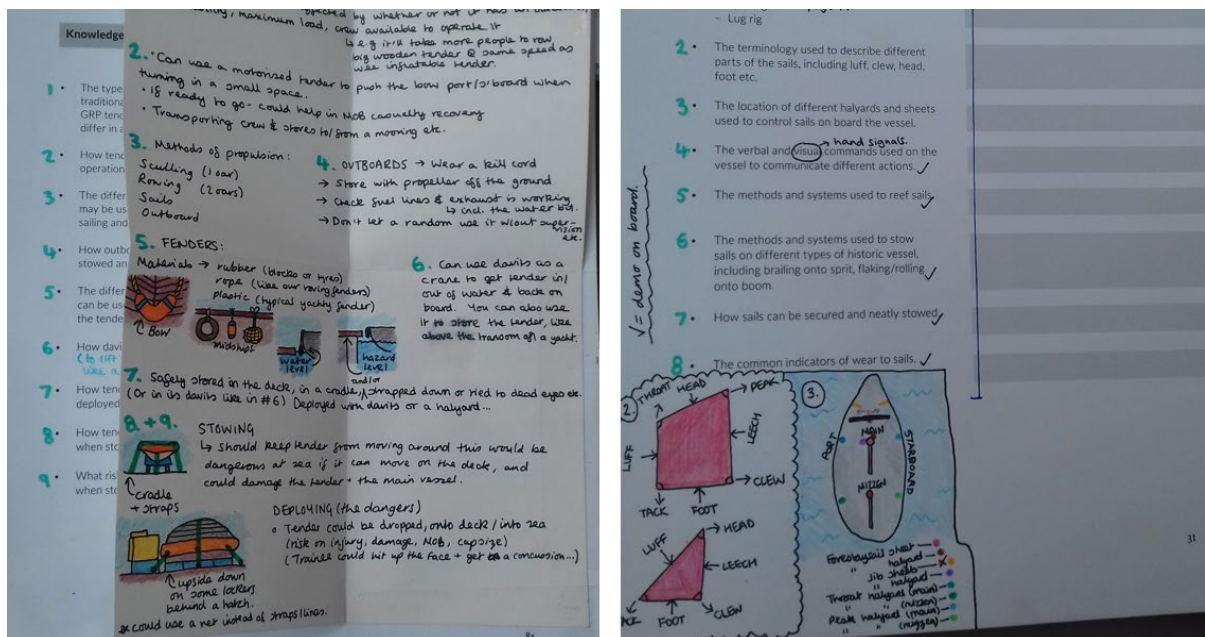 Knowledge
1. The type
traditiona
GRP tend
differ in a
2. How tend
operation
3. The differ
may be us
sailing and
4. How outbo
stowed an
5. The differ
can be use
the tende
6. How davi
(to lift
like a
7. How ten
deployed
8. How ten
when sto
9. What ris
when sto
by whether or not it has an
maximum load, crew available to operate it
↳ e.g it'll take more people to row
big wooden tender @ same speed as
wee inflatable tender.
2. • Can use a motorized tender to push the bow port/s'board when
turning in a small space.
• If ready to go - could help in MOB casualty recovery
• Transporting crew & stores to/from a mooring etc.
3. Methods of propulsion:
Sculling (1 oar)
Rowing (2 oars)
Sails
Outboard
4. OUTBOARDS → Wear a kill cord
→ Store with propeller off the ground
→ Check fuel lines & exhaust is working
↳ incl. the water bit.
→ Don't let a random use it w/out super-
vision
etc.
5. FENDERS:
Materials → rubber (blocks or tyres)
rope (like our roving fenders)
plastic (typical yachty fender)
Bow
midships
water
level
and/or
hazard
level
6. Can use davits as a
crane to get tender in/
out of water & back on
board. You can also use
it to store the tender, like
above the transom of a yacht.
7. Safely stored in the deck, in a cradle, strapped down or tied to dead eyes etc.
(Or in its davits like in #6) Deployed with davits or a halyard...
8 + 9. STOWING
↳ Should keep tender from moving around this would be
dangerous at sea if it can move on the deck, and
could damage the tender + the main vessel.
cradle
+ straps
DEPLOYING (the dangers)
• Tender could be dropped, onto deck / into sea
(risk on injury, damage, MOB, capsize)
(Trainee could hit up the face + get a concussion...)
upside down
on some lockers
behind a hatch.
* could use a net instead of straps/lines.
- Lug rig
2. The terminology used to describe different
parts of the sails, including luff, clew, head,
foot etc.
3. The location of different halyards and sheets
used to control sails on board the vessel.
→ hand signals.
4. The verbal and visual commands used on the
vessel to communicate different actions. ✓
5. The methods and systems used to reef sails. ✓
6. The methods and systems used to stow
sails on different types of historic vessel,
including brailing onto sprit, flaking/rolling
onto boom. ✓
7. How sails can be secured and neatly stowed. ✓
8. The common indicators of wear to sails. ✓
✓ = demo on board.
2.
THROAT
HEAD
PEAK
LUFF
LEECH
TACK
FOOT
CLEW
HEAD
LUFF
LEECH
TACK
FOOT
CLEW
3.
PORT
MAIN
STARBOARD
MIZZEN
Forestaysail sheet
" halyard
Jib sheets
" halyard
Throat halyard (main)
" " (mizzen)
Peak halyard (main)
" " (mizzen)
31